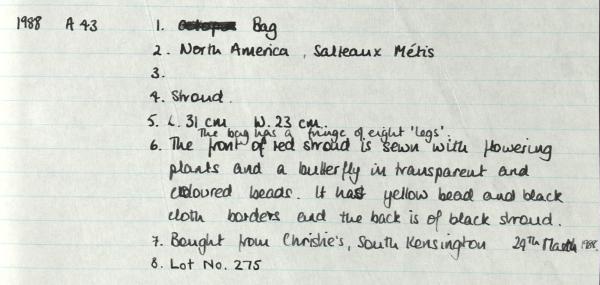 1988 A 43 1. Bag
2. North America, Salteaux Métis
3.
4. Stroud.
5. L. 31 cm W. 23 cm.
The bag has a fringe of eight 'legs'.
6. The front of red stroud is sewn with flowering
plants and a butterfly in transparent and
coloured beads. It has yellow bead and black
cloth borders and the back is of black stroud.
7. Bought from Christie's, South Kensington 29th March 1988.
8. Lot No. 275